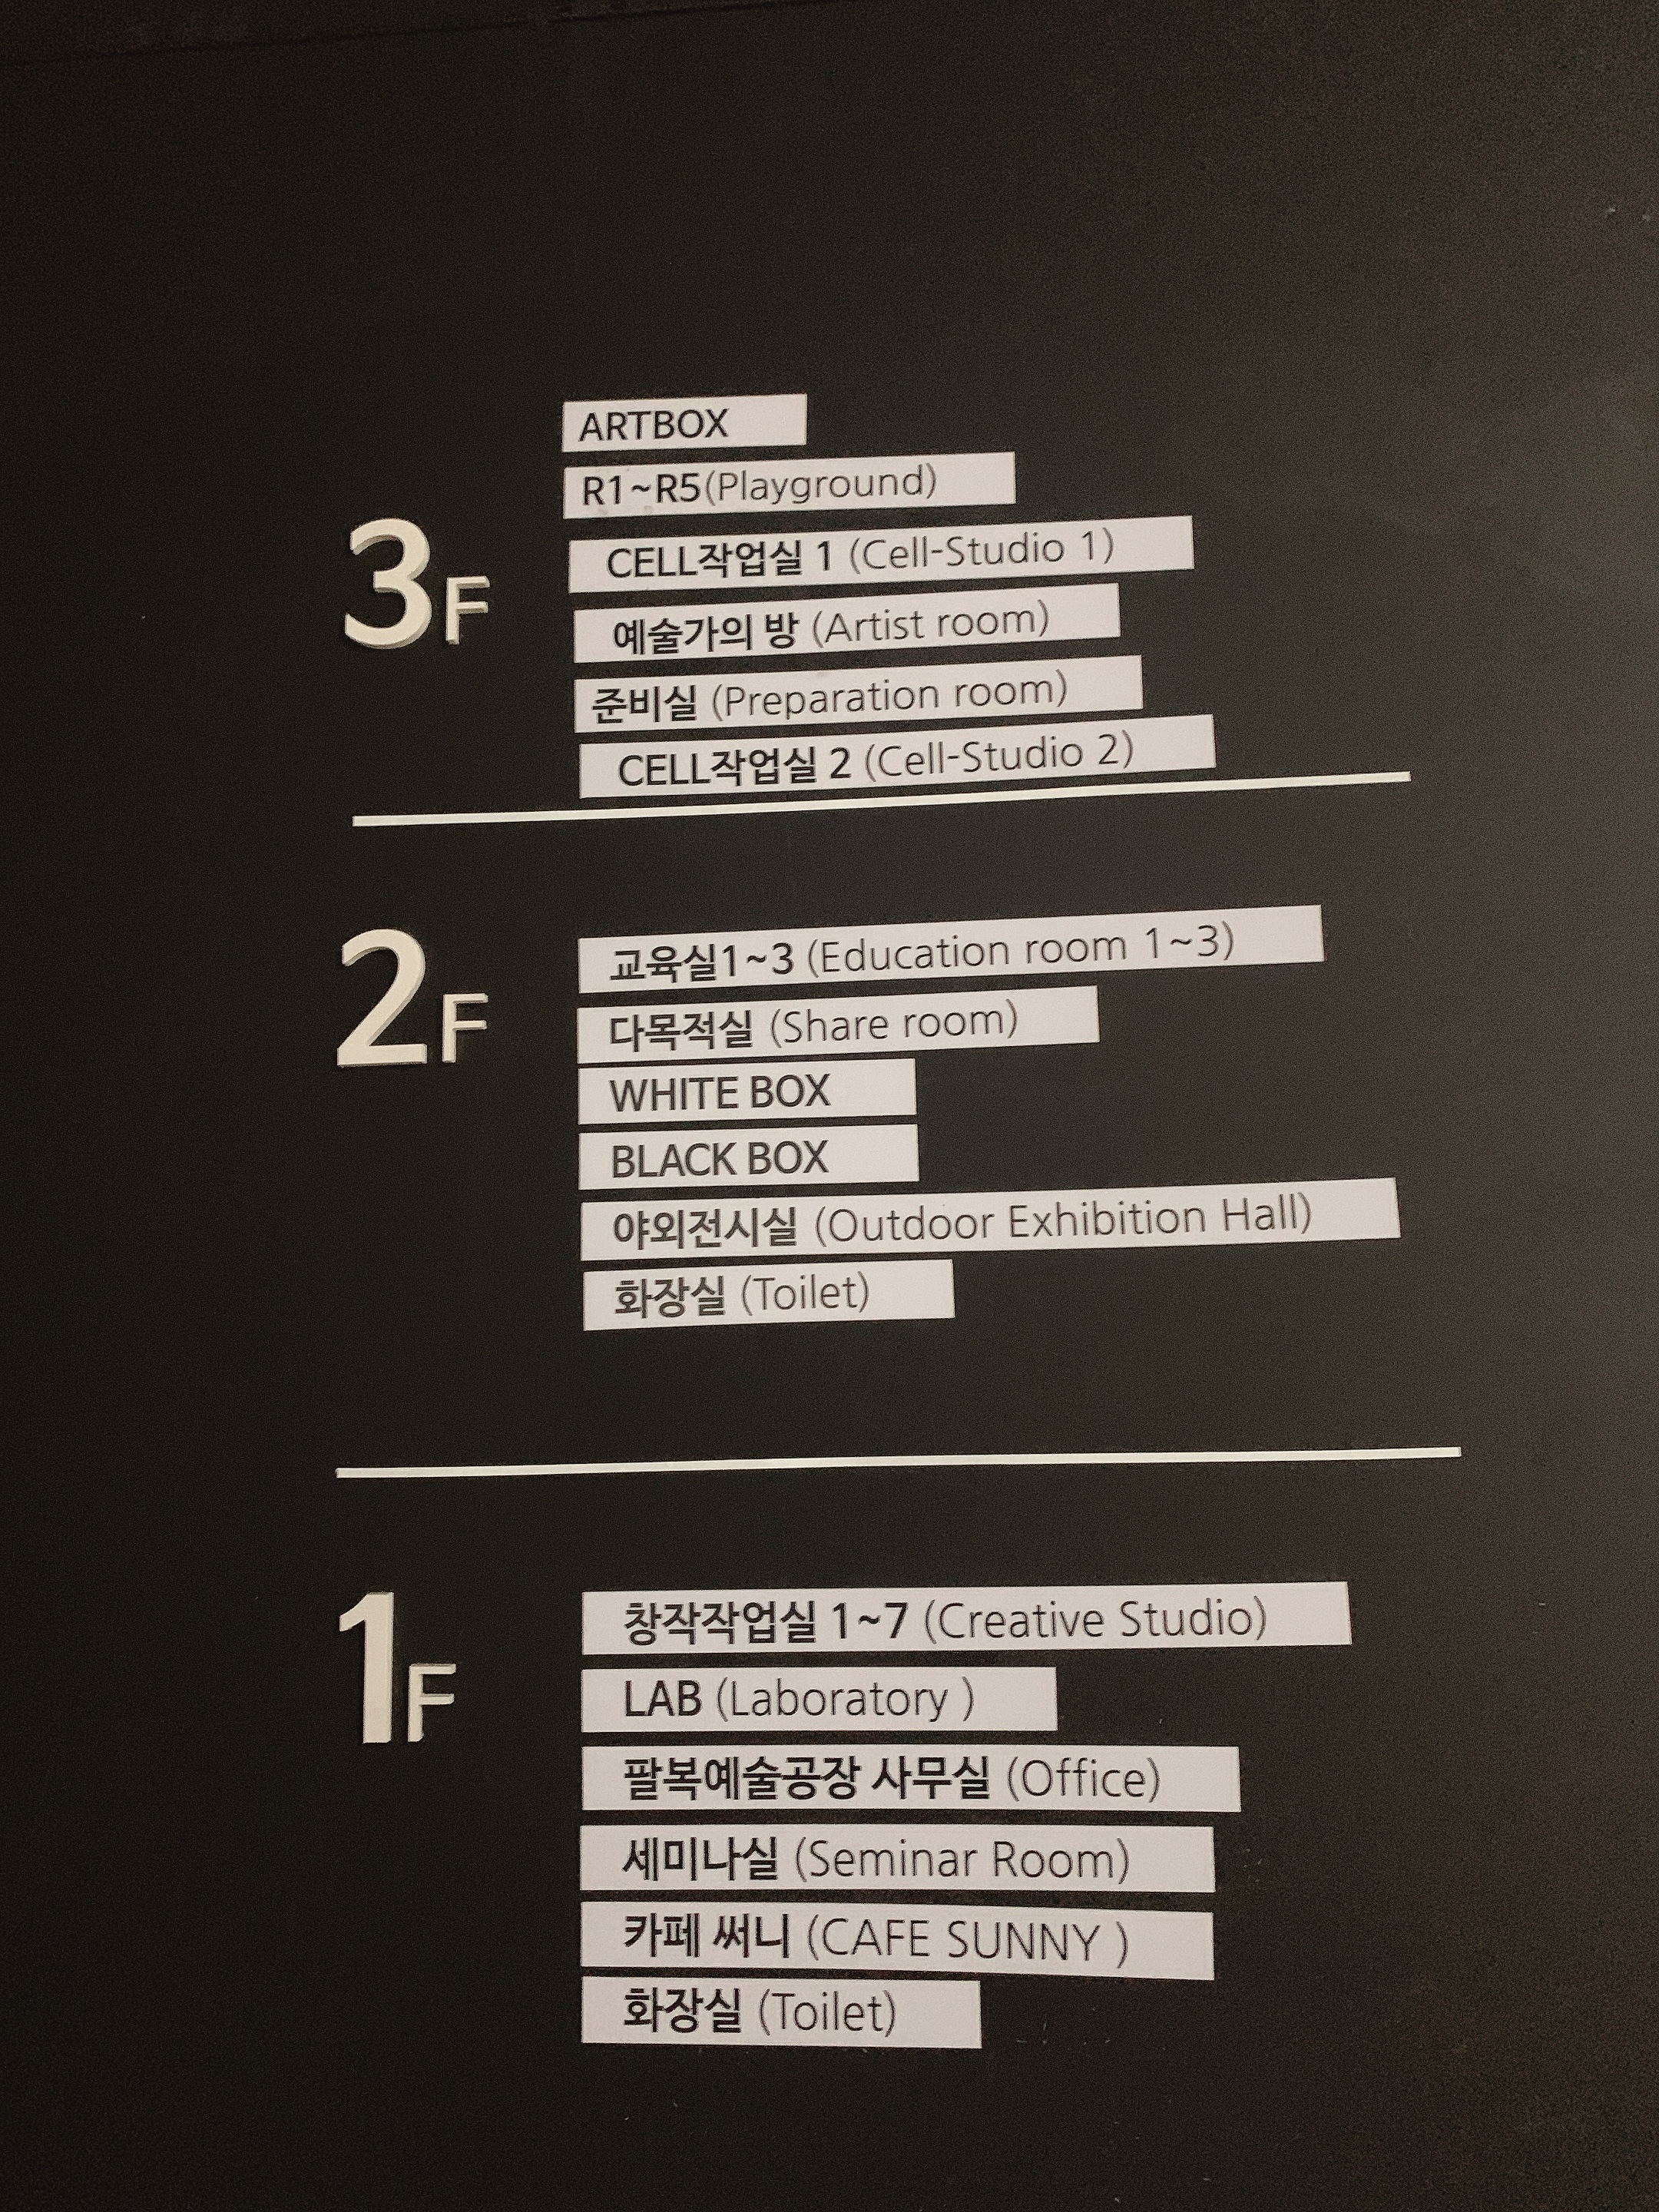 3F
ARTBOX
R1~R5(Playground)
CELL작업실 1 (Cell-Studio 1)
예술가의 방 (Artist room)
준비실 (Preparation room)
CELL작업실 2 (Cell-Studio 2)
2F
교육실1~3 (Education room 1~3)
다목적실 (Share room)
WHITE BOX
BLACK BOX
야외전시실 (Outdoor Exhibition Hall)
화장실 (Toilet)
1F
창작작업실 1~7 (Creative Studio)
LAB (Laboratory )
팔복예술공장 사무실 (Office)
세미나실 (Seminar Room)
카페 써니 (CAFE SUNNY )
화장실 (Toilet)